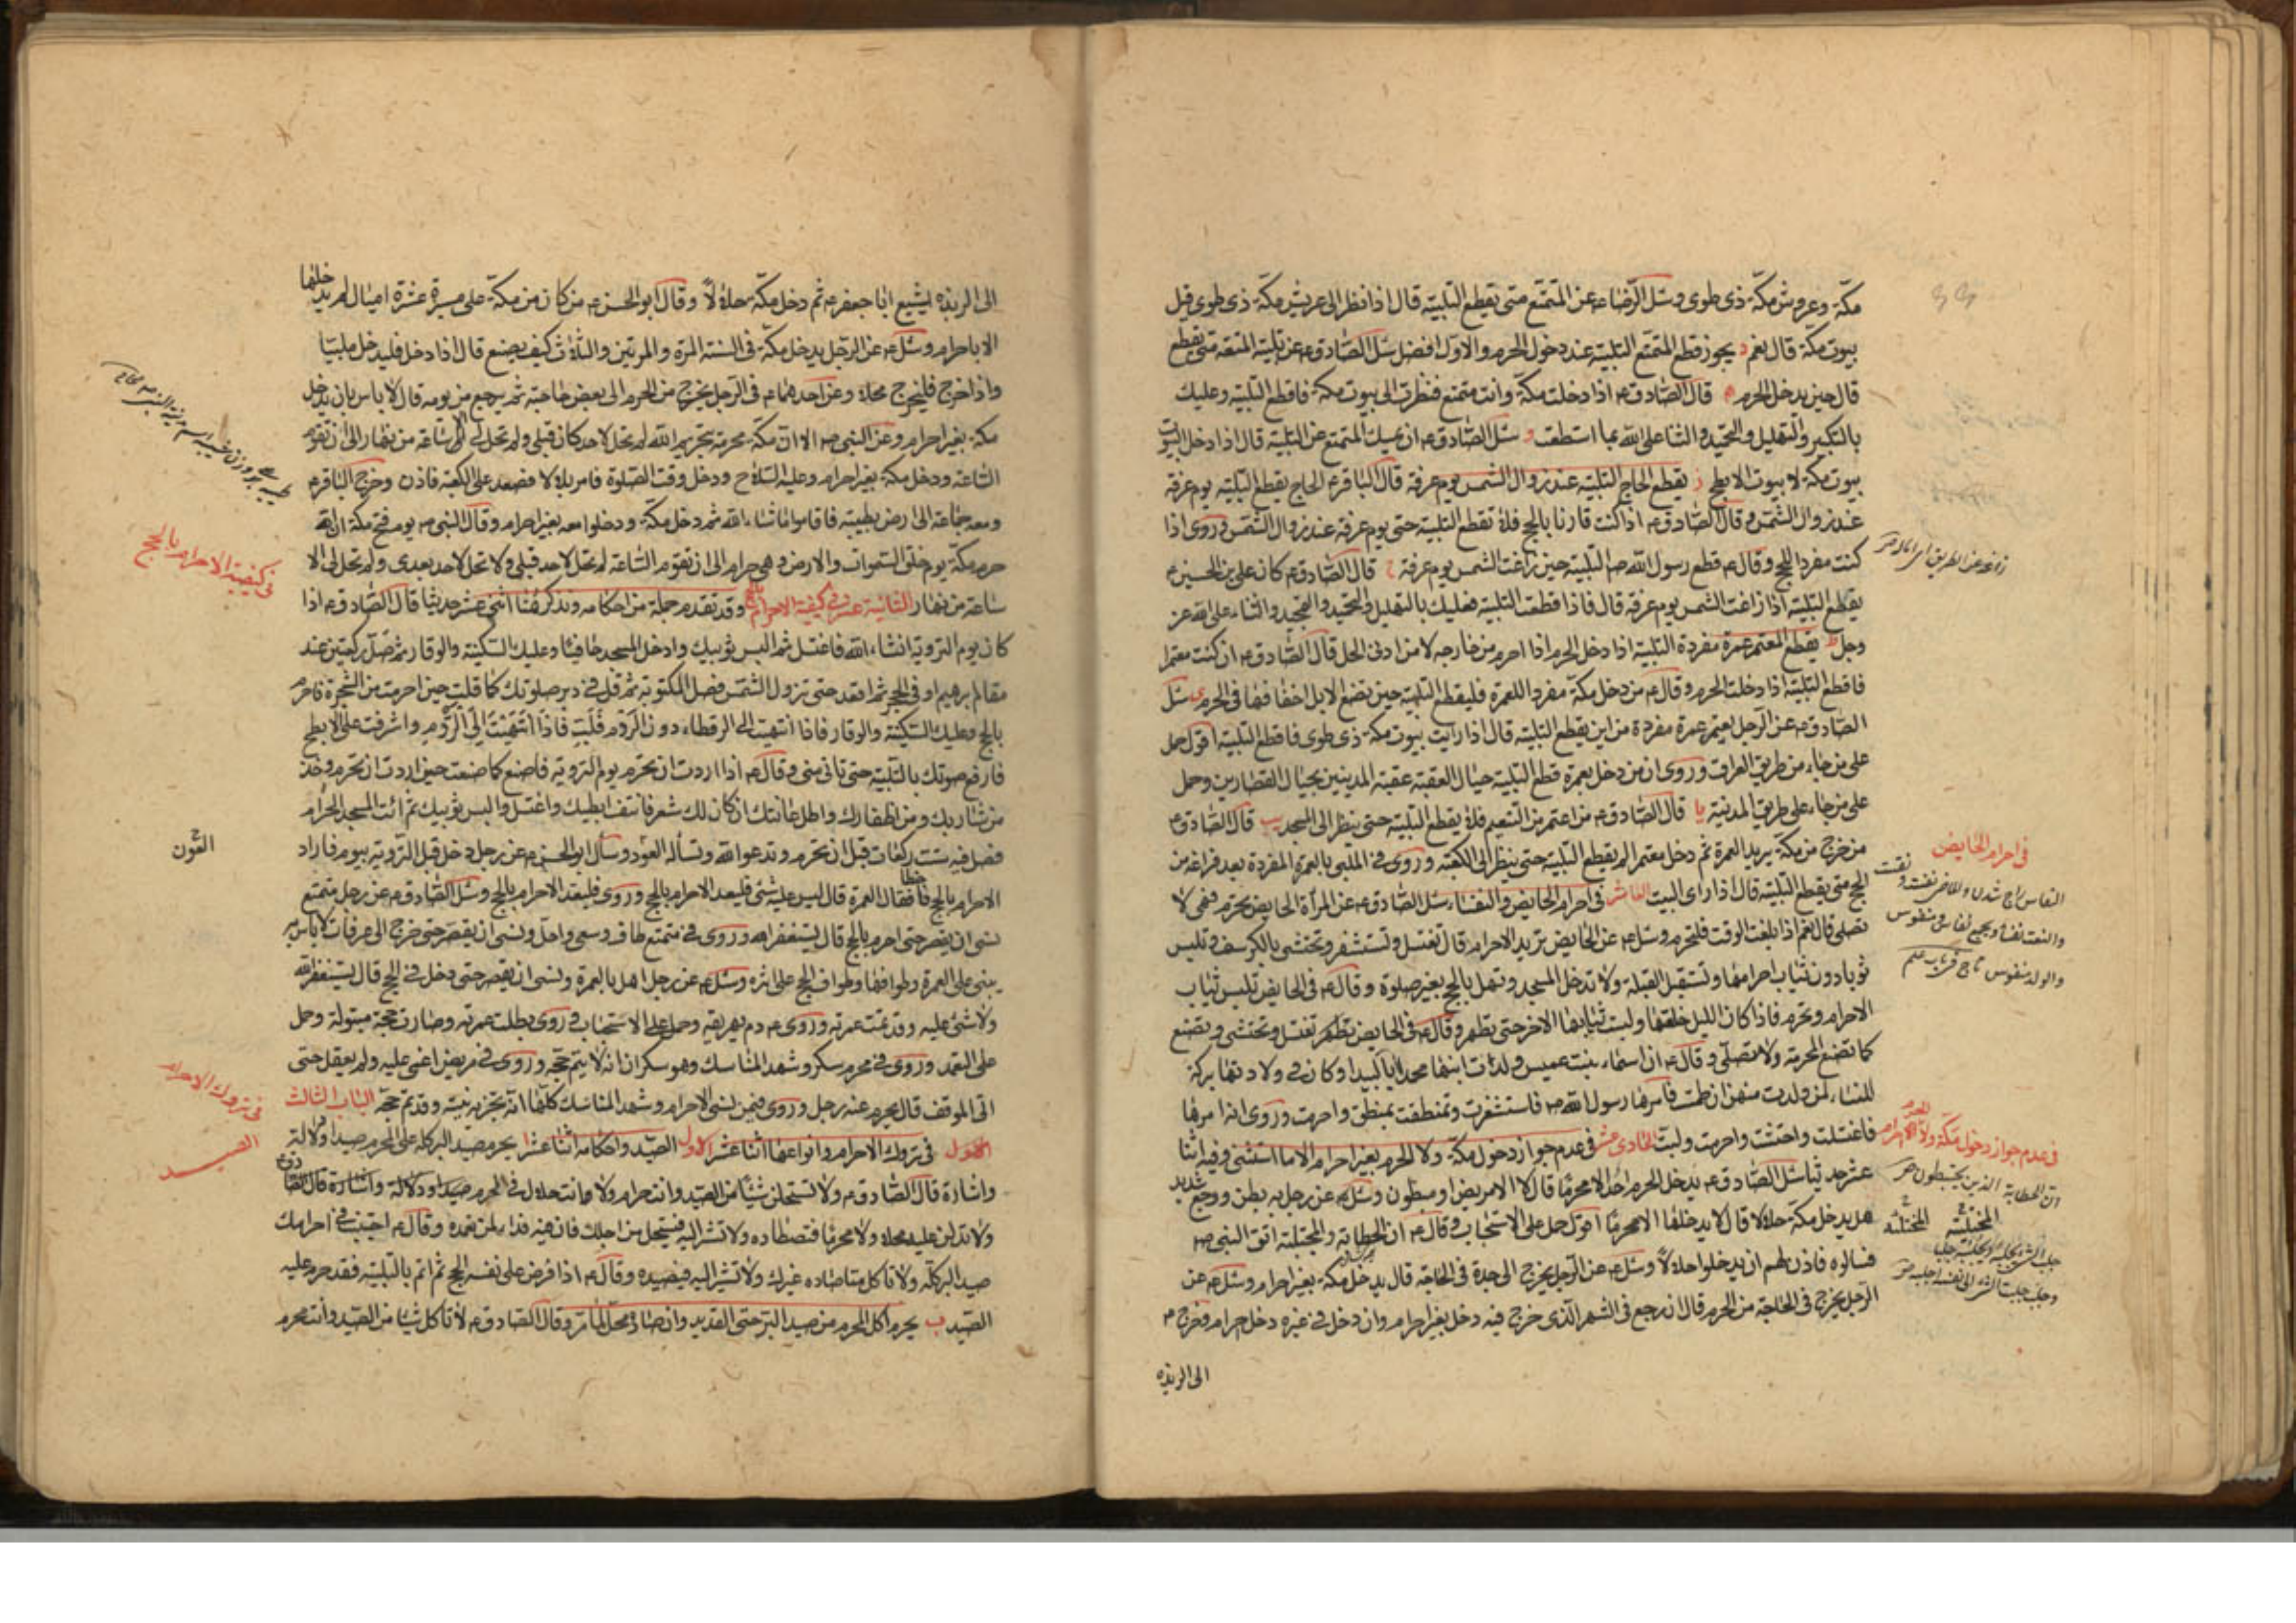 مكّة وعروش مكّة ذى طوى وسئل الرّضاء عن المتمتّع متى يقطع التلبيّة قال اذا نظر الى عريش مكّة ذى طوى قيل
بيوت مكّة قال نعم د يجوز قطع المتمتّع التلبية عند دخول الحرم والاوّل افضل سئل الصّادق ع عن تلبية المتعة متى يقطع
قال حين يدخل الحرم ه قال الصّادق ع اذا دخلت مكّة وانت متمتع فنظرت الى بيوت مكّة فاقطع التلبية وعليك
بالتكبير والتهليل والتحميد والثنا على الله بما استطعت و سئل الصّادق ع ان يمسك المتمتع عن التلبية قال اذا دخل البيوت
بيوت مكّة لا بيوت الابطح ز يقطع الحاج التلبية عند زوال الشمس يوم عرفة قال الباقر ع الحاج يقطع التلبية يوم عرفة
عند زوال الشمس وقال الصّادق ع اذا كنت قارنا بالحج فلا تقطع التلبية حتى يوم عرفة عند زوال الشمس وروى اذا
كنت مفردا للحج وقال ع قطع رسول الله ص التلبية حين زاغت الشمس يوم عرفة ح قال الصّادق ع كان على بن الحسين ع
يقطع التلبية اذا زاغت الشمس يوم عرفة قال فاذا قطعت التلبية فعليك بالتهليل والتحميد والتمجيد والثناء على الله عز
وجل ط يقطع المعتمر عمرة مفردة التلبية اذا دخل الحرم اذا احرم من خارجه لا من ادنى الحل قال الصّادق ع ان كنت معتمرا
فاقطع التلبية اذا دخلت الحرم وقال ع من دخل مكّة مفردا للعمرة فليقطع التلبية حين تضع الابل اخفافها فى الحرم ى سئل
الصّادق ع عن الرّجل يعتمر عمرة مفردة من اين يقطع التلبية قال اذا رايت بيوت مكة ذى طوى فاقطع التلبية اقول حمل
على من جاء من طريق العراق وروى ان من دخل بعمرة قطع التلبية حيال العقبة عقبة المدنيين بحيال القصارين وحمل
على من جاء على طريق المدنية يا قال الصّادق ع من اعتمر من التنعيم فلا يقطع التلبية حتى ينظر الى المسجد يب قال الصّادق ع
من خرج من مكّة يريد العمرة ثم دخل معتمرا لم يقطع التلبية حتى ينظر الى الكعبة وروى فى الملبى بالعمرة المفردة بعد فراغه من
الحج متى يقطع التلبية قال اذا راى البيت العاشر فى احرام الحايض والنفساء سئل الصّادق ع عن المرأة الحايض تحرم وهى لا
تصلى قال نعم اذا بلغت الوقت فلتحرم وسئل ع عن الحايض تريد الاحرام قال تغتسل وتستثفر وتحتشى بالكرسف وتلبس
ثوبا دون ثياب احرامها وتستقبل القبلة ولا تدخل المسجد وتهل بالحج بغير صلوة وقال ع فى الحايض تلبس ثياب
الاحرام وتحرم فاذا كان الليل خلعتها ولبست ثيابها الاخر حتى تطهر وقال ع فى الحايض تطهر تغتسل وتحتشى وتصنع
كما تصنع المحرمة ولا تصلّى وقال ع ان اسماء بنت عميس ولدت ابنها محمدا بالبيدا وكان فى ولادتها بركة
للنساء لمن ولدت منهن ان طمثت فامرها رسول الله ص فاستثفرت وتمنطقت بمنطق واحرمت وروى انه امرها
فاغتسلت واحتشت واحرمت ولبت الحادى عشر فى عدم جواز دخول مكّة ولا الحرم بغير احرام الا ما استثنى وفيه اثنا
عشر حديثا سئل الصّادق ع يدخل الحرم احد الا محرما قال لا الا مريض او مبطون وسئل ع عن رجل به بطن ووجع شديد
هل يدخل مكّة حلالا قال لا يدخلها الا محرما اقول حمل على الاستحباب وقال ع ان الحطابة والمجتلبة اتوا النبى ص
فسالوه فاذن لهم ان يدخلوا حلالاً وسئل ع عن الرّجل يخرج الى جدة فى الحاجة قال يدخل مكة بغير احرام وسئل ع عن
الرّجل يخرج فى الحاجة من الحرم قال ان رجع فى الشهر الّذى خرج فيه دخل بغير احرام وان دخل فى غيره دخل باحرام وخرج ع
الى الربذه
فى احرام الحايض
فى عدم جواز دخول مكّة ولا الحرم بغير احرام
الى الربذه ليشيع ابا جعفر ع ثم دخل مكّة حلالاً وقال ابو الحسن ع من كان من مكّة على مسيرة عشرة اميال لم يدخلها
الا باحرام وسئل ع عن الرّجل يدخل مكّة فى السنة المرة والمرتين والثلاث كيف يصنع قال اذا دخل فليدخل ملبيا
واذا خرج فليخرج محلا وعن احدهما ع فى الرّجل يخرج من الحرم الى بعض حاجته ثم يرجع من يومه قال لا باس بان يدخل
مكة بغير احرام وعن النبى ص الا ان مكّة محرمة بتحريم الله لم تحل لاحد كان قبلى ولم تحل لى الا ساعة من نهار الى ان تقوم
الساعة ودخل مكة بغير احرام وعليه السّلاح ودخل وقت الصّلوة فامر بلالا فصعد على الكعبة فاذن وخرج الباقر ع
ومعه جماعة الى ارض بطيبة فاقاموا ما شاء الله ثم دخل مكة ودخلوا معه بغير احرام وقال النبى ص يوم فتح مكة ان الله
حرم مكّة يوم خلق السموات والارض وهى حرام الى ان تقوم الساعة لم تحل لاحد قبلى ولا تحل لاحد بعدى ولم تحل لى الا
ساعة من نهار الثانية عشر فى كيفية الاحرام بالحج وقد تقدم جملة من احكامه ونذكر هنا اثنى عشر حديثا قال الصّادق ع اذا
كان يوم التروية انشاء الله فاغتسل ثم البس ثوبيك وادخل المسجد حافيا وعليك السّكينة والوقار ثم صلّ ركعتين عند
مقام ابرهيم او فى الحجر ثم اقعد حتى تزول الشمس فصل المكتوبة ثم قل فى دبر صلوتك كما قلت حين احرمت من الشجرة فاحرم
بالحج وعليك السّكينة والوقار فاذا انتهيت الى الرقطاء دون الرّدم فَلَبِّ فَاذَا انْتَهَيْتَ اِلَى الرّدم واشرفت على الابطح
فارفع صوتك بالتلبية حتى تاتى منى وقال ع اذا اردت ان تحرم يوم التروية فاصنع كما صنعت حين اردت ان تحرم وخذ
من شاربك ومن اظفارك واطل عانتك ان كان لك شعر وانتف ابطيك واغتسل والبس ثوبيك ثم ائت المسجد الحرام
فصل فيه ست ركعات قبل ان تحرم وتدعو الله وتسأله العون وسئل ابو الحسن ع عن رجل دخل قبل التروية بيوم فاراد
الاحرام بالحج فاخطا فقال العمرة قال ليس عليه شئ فليعد الاحرام بالحج وروى فليعد الاحرام بالحج وسئل الصّادق ع عن رجل متمتع
نسى ان يقصر حتى احرم بالحج قال يستغفر الله وروى فى متمتع طاف وسعى واحل ونسى ان يقصر حتى خرج الى عرفات لا باس به
يبنى على العمرة وطوافها وطواف الحج على اثره وسئل ع عن رجل اهل بالعمرة ونسى ان يقصر حتى دخل فى الحج قال يستغفر الله
ولا شئ عليه وقد تمت عمرته وروى ع دم يهريقه وحمل على الاستحباب وروى بطلت عمرته وصارت حجة مبتولة وحمل
على التعمد وروى فى محرم سكر وشهد المناسك وهو سكران انه لا يتم حجّه وروى فى مريض اغمى عليه ولم يعقل حتى
اتى الموقف قال يحرم عنه رجل وروى فيمن نسى الاحرام وشهد المناسك كلّها انّه تجزيه نيته وقد تم حجّه الباب الثالث
الاول فى تروك الاحرام وانواعها اثنا عشر الاول الصّيد واحكامه اثنا عشر ا يحرم صيد البر كله على المحرم صيدا ودلالة
واشارة قال الصّادق ع ولا تستحلن شيئا من الصّيد وانت حرام ولا وانت حلال فى الحرم
ولا تدلن عليه محلا ولا محرما فتصطاده ولا تشر اليه فيستحل من اجلك فان فيه فداء لمن تعمده وقال ع اجتنب فى احرامك
صيد البر كلّه ولا تاكل مما صاده غيرك ولا تشر اليه فيصيده وقال ع اذا فرض على نفسه الحج ثم اتم بالتلبية فقد حرم عليه
الصّيد ب يحرم اكل المحرم من صيد البرّ حتى القديد وان صاده محل لما مر وقال الصّادق ع لا تاكل شيئا من الصّيد وانت محرم
فى كيفية الاحرام بالحج
العون
فى تروك الاحرام
الصيد